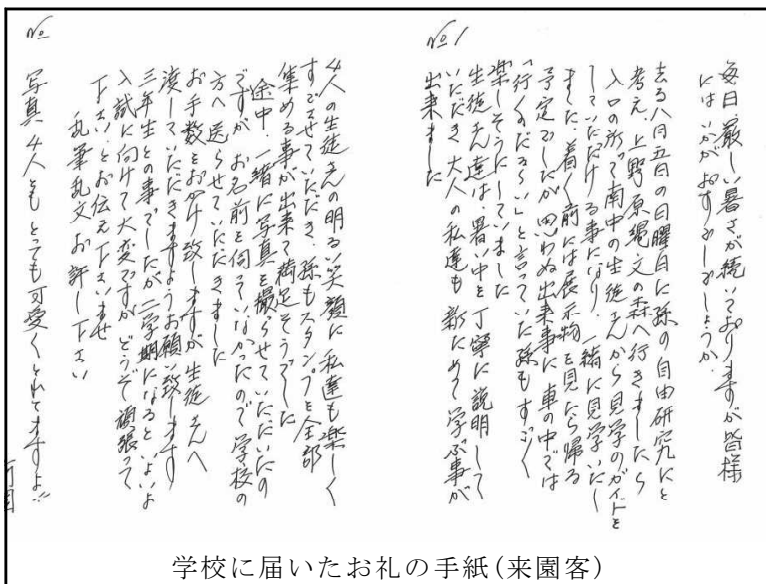 No 1
毎日厳しい暑さが続いておりますが皆様
にはいかがおすごしでしょうか。
去る八月五日の日曜日に孫の自由研究にと
考え、上野原縄文の森へ行きましたら
入口の所で南中の生徒さんから見学のガイドを
していただける事になり、一緒に見学いたし
ました。着く前には展示物を見たら帰る
予定でしたが思わぬ出来事に車の中では
「行くのだるい」と言っていた孫もすごく
楽しそうにしていました
生徒さん達は、暑い中を丁寧に説明して
いただき大人の私達も新ためて学ぶ事が
出来ました
No
4人の生徒さんの明るい笑顔に私達も楽しく
すごさせていただき、孫もスタンプを全部
集める事が出来て満足そうでした
途中、一緒に写真を撮らせていただいたの
ですが、お名前を伺っていなかったので学校の
方へ送らせていただきました
お手数をおかけ致しますが生徒さんへ
渡していただきますようお願い致します
三年生との事でしたが二学期になるといよいよ
入試に向けて大変ですがどうぞ頑張って
下さい、とお伝え下さいませ
乱筆乱文お許し下さい
写真4人ともとっても可愛くとれてますよ!!
学校に届いたお礼の手紙(来園客)